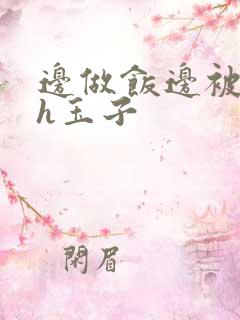 邊做飯邊被
h玉子
閑眉